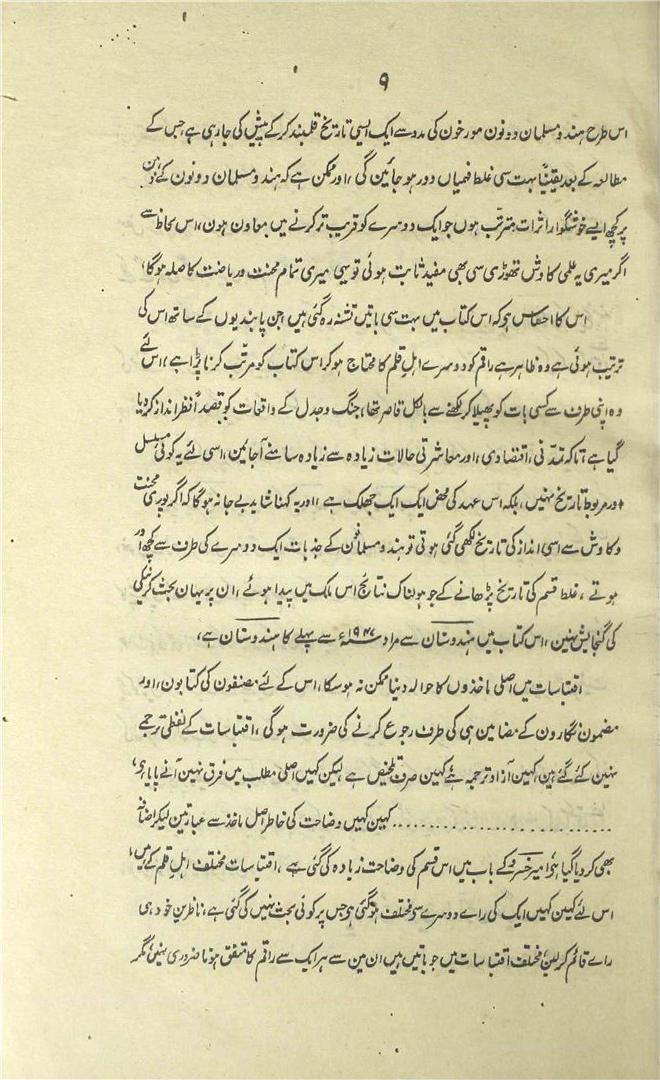 ۹
اس طرح ہندو مسلمان دونون مورخون کی مدد سے ایک ایسی تاریخ قلمبند کرکے پیش کی جارہی ہے جس کے
مطالعہ کے بعد یقیناً بہت سی غلط فہمیاں دور ہوجائین گی، اور ممکن ہے کہ ہندو مسلمان دونون کے ذہن
پر کچھ ایسے خوشگوار اثرات مترتب ہوں جو ایک دوسرے کو قریب تر کرنے میں معاون ہون، اس لحاظ سے
اگر میری یہ علمی کاوش تھوڑی سی بھی مفید ثابت ہوئی تو یہی میری تمام محنت و ریاضت کا صلہ ہوگا،
اس کا احساس ہو کہ اس کتاب میں بہت سی باتین تشنہ رہ گئی ہیں جن پابندیوں کے ساتھ اس کی
ترتیب ہوئی ہے وہ ظاہر ہے راقم کو دوسرے اہلِ قلم کا محتاج ہوکر اس کتاب کو مرتب کرنا پڑا ہے، اس لئے
وہ اپنی طرف سے کسی بات کو پھیلا کر لکھنے سے بالکل قاصر تھا، جنگ و جدل کے واقعات کو قصداً نظر انداز کردیا
گیا ہے، تاکہ تمدنی، اقتصادی، اور معاشرتی حالات زیادہ سے زیادہ سامنے آجائین، اسی لئے یہ کوئی مسلسل
اور مربوط تاریخ نہیں، بلکہ اس عہد کی محض ایک ایک جھلک ہے، اور یہ کہنا شاید بے جا نہ ہوگا کہ اگر پوری محنت
و کاوش سے اسی انداز کی تاریخ لکھی گئی ہوتی تو ہندو مسلمانون کے جذبات ایک دوسرے کی طرف سے کچھ اور
ہوتے، غلط قسم کی تاریخ پڑھانے کے جو ہولناک نتائج اس ملک میں پیدا ہوئے، ان پر یہان بحث کرنیکی
کی گنجایش نہین، اس کتاب میں ہندوستان سے مراد ۱۹۴۷ء سے پہلے کا ہندوستان ہے،
اقتباسات میں اصلی ماخذوں کا حوالہ دینا ممکن نہ ہوسکا، اس کے لئے مصنفون کی کتابون، اور
مضمون نگارون کے مضامین ہی کی طرف رجوع کرنے کی ضرورت ہوگی، اقتباسات کے لفظی ترجمے
نہین کئے گئے ہین، کہین آزاد ترجمہ ہے، کہین صرف تلخیص ہے لیکن کہیں اصلی مطلب میں فرق نہین آنے پایا ہی،
........................ کہین کہیں وضاحت کی خاطر اصل ماخذ سے عبارتین لیکر اضافہ
بھی کردیا گیا ہو، امیر خسرو کے باب میں اس قسم کی وضاحت زیادہ کی گئی ہے، اقتباسات مختلف اہلِ قلم کے ہیں،
اس لئے کہین کہیں ایک کی راے دوسرے سے مختلف ہوگئی ہو جس پر کوئی بحث نہیں کی گئی ہے، ناظرین خود ہی
راے قائم کرلین، مختلف اقتباسات میں جو باتیں ہیں ان مین سے ہر ایک سے راقم کا متفق ہونا ضروری نہین، مگر